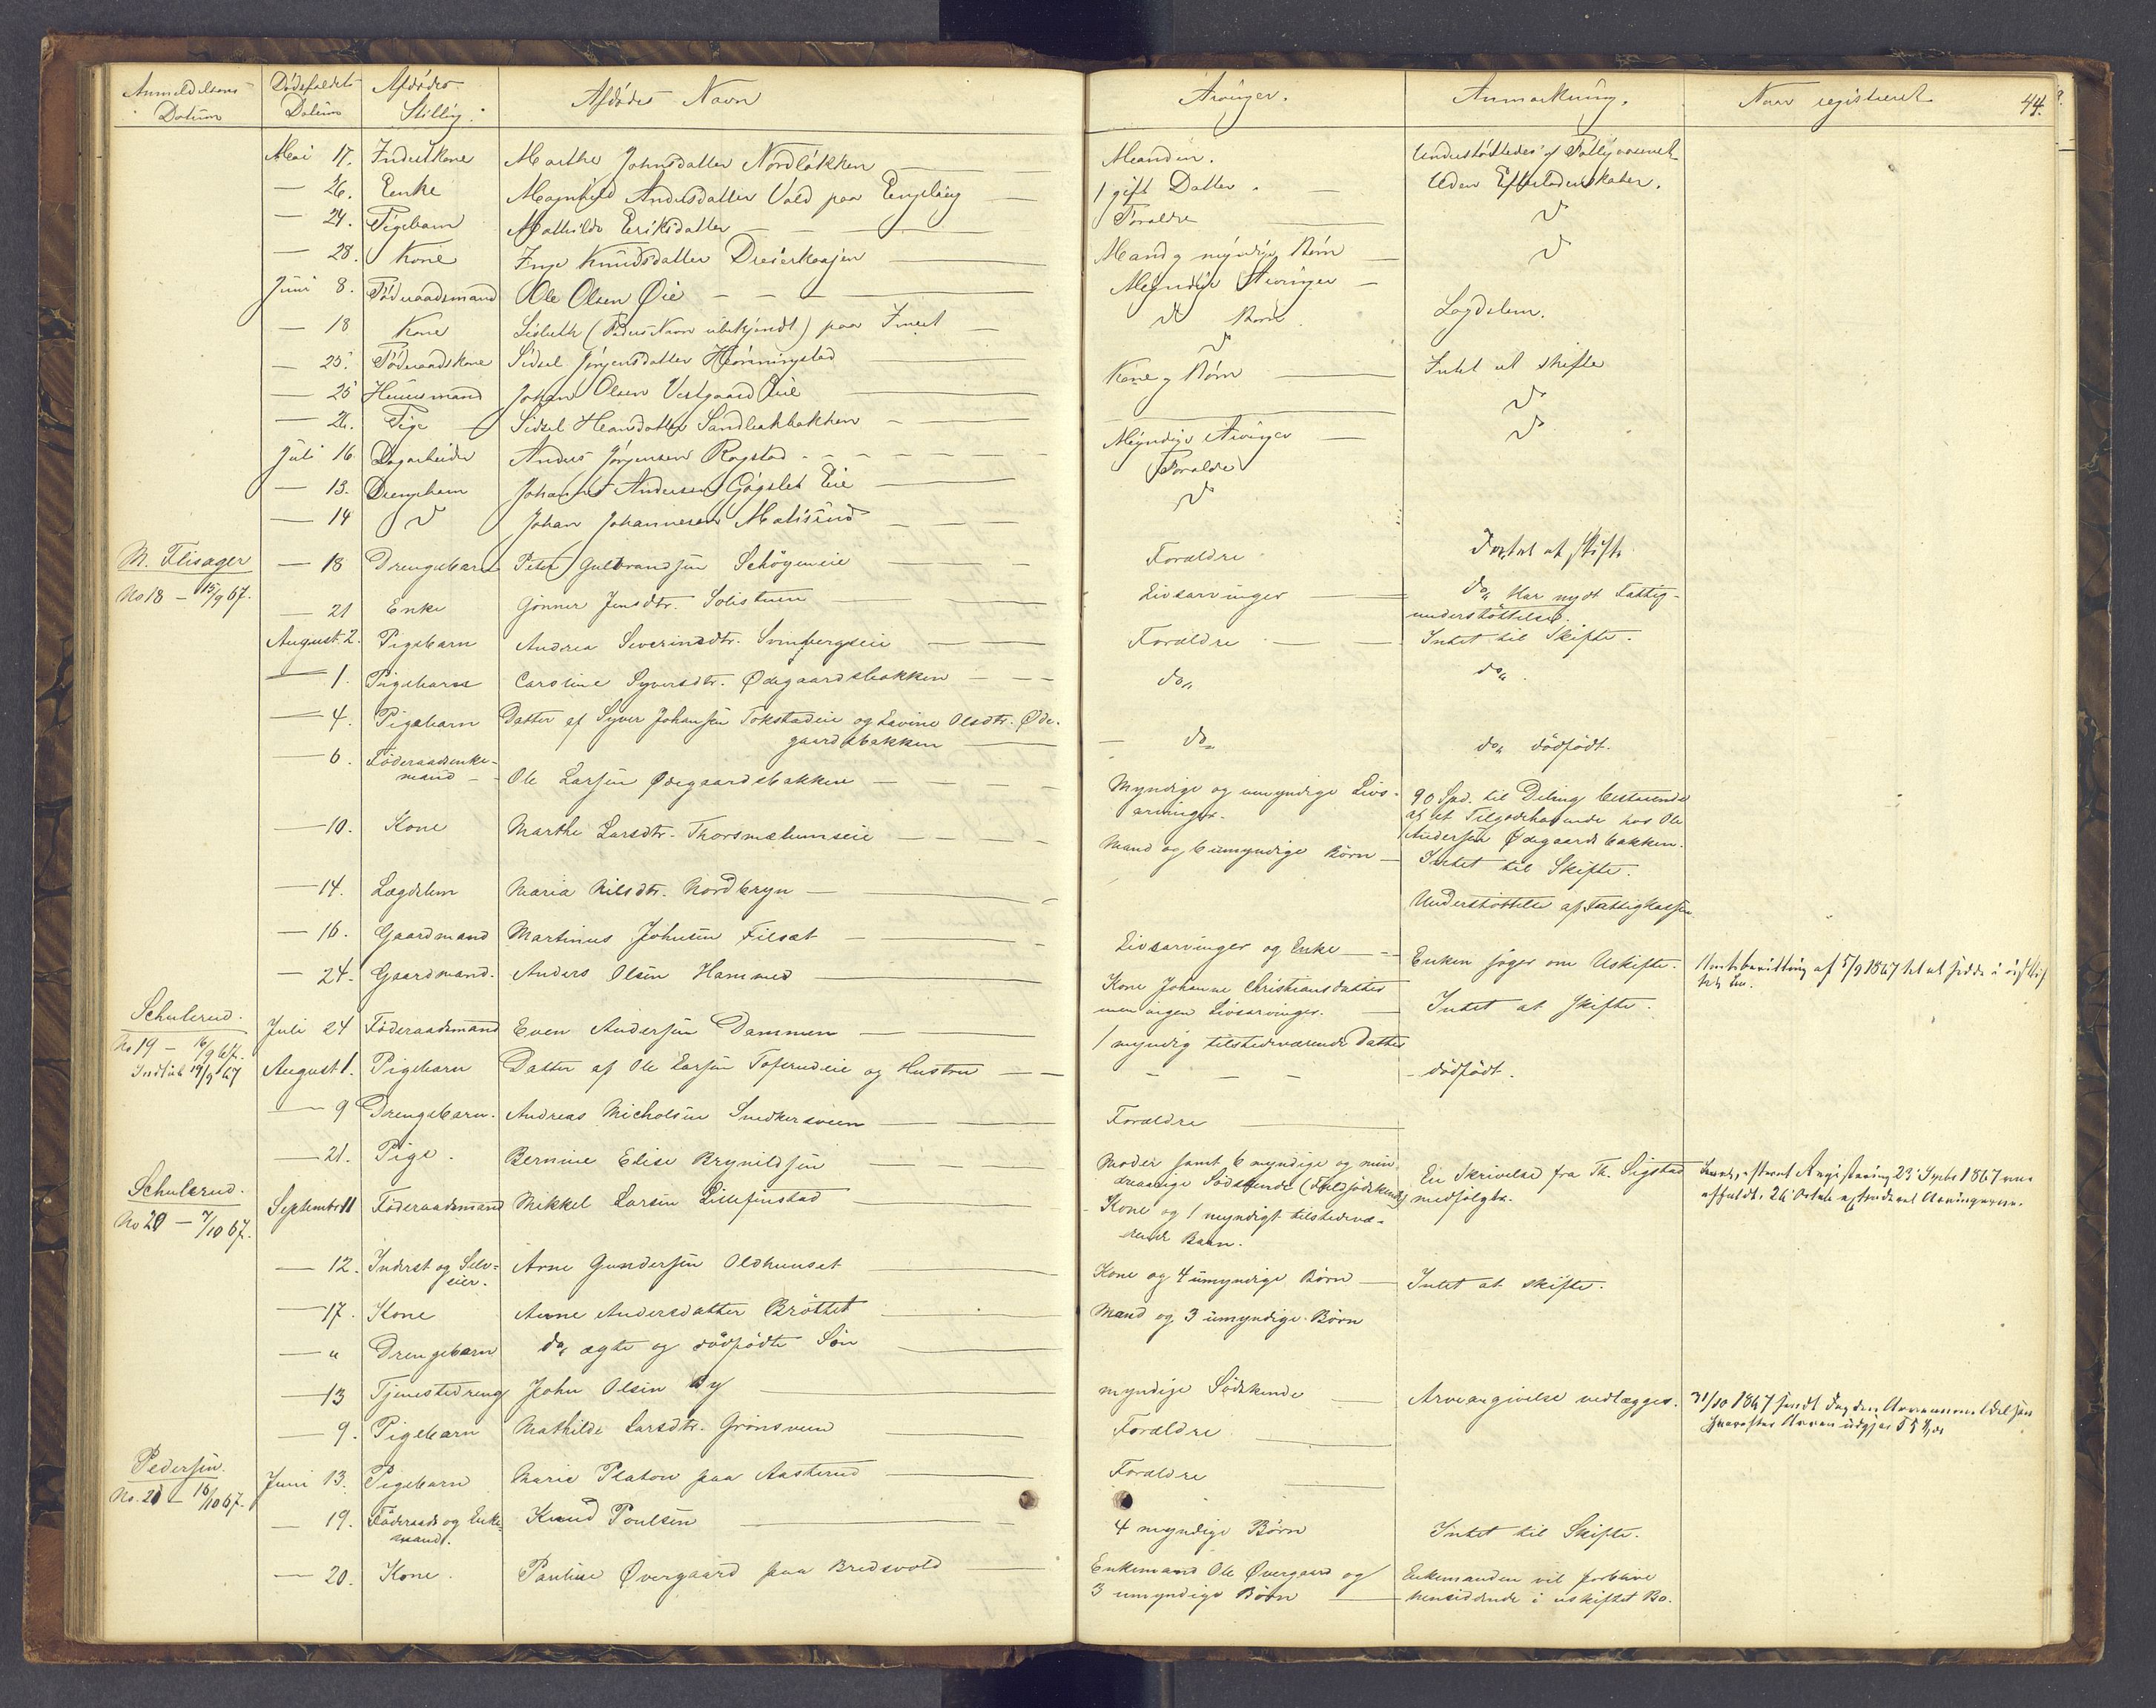 Anmeldelsens Datum | Dødsfaldets Datum | Afdødes Stilling | Afdødes Navn | Arvinger. | Anmærkning. | Naar registreret | 44.
Mai 17. Inderstkone Marthe Johnsdatter Nordløkken — Manden. Understøttedes af Fattigvæsenet
— 26. Enke Magnhild Andersdatter Vold paa — 1 gift Datter. — Uden Efterladenskaber.
— 24. Pigebarn Mathilde Eriksdatter — Forældre — do
— 28. Kone Inge Knudsdatter — Mand og myndige Børn — do
Juni 8. Føderaadsmand Ole Olsen Øie — Myndige Arvinger —
— 18 Kone Lisbeth (Faders Navn ubekjendt) paa — do Børn. Lægdslem.
— 25. Føderaadskone Sidsel Jørgensdatter — do
— 25 Huusmand Johan Olsen Vestgaard Eie — Kone og Børn — Intet at skifte
— 26. Pige Sidsel Hansdatter Sandbakbakken — do
Juli 16 Dagarbeider Anders Jørgensen Rogstad — Myndige Arvinger — do
— 13. Drengebarn Johannes Andersen Eie — Forældre
— 14 do Johan Johannesen — do
M. Flisager
No 18 – 15/9 67.
— 18 Drengebarn Peter Gulbrandsen Schøyeneie — Forældre Intet at skifte.
— 21 Enke Gønner Jensdtr. Solistuen — Livsarvinger — do Har nydt Fattig-
understøttelse.
August 2. Pigebarn Andrea Severinsdtr. — Forældre — Intet til Skifte.
— 1. Pigebarn Caroline Syversdtr. Ødegaardsbakken — do do.
— 4. Pigebarn Datter af Syver Johansen Tokstadeie og Lovine Olsdtr. Øde-
gaardsbakken — do do dødfødt.
— 6. Føderaadsenke-
mand — Ole Larsen Ødegaardsbakken — Myndige og umyndige Livs-
arvinger. 90 Spd. til Deling bestaaende
af et Tilgodehavende hos Ole
Andersen Ødegaardsbakken.
— 10. Kone Marthe Larsdtr. Thorsmæhumseie — Mand og 6 umyndige Børn — Intet til Skifte.
— 14. Lægdslem Maria Nilsdtr. Nordbryn — Understøttelse af Fattigkassen
— 16. Gaardmand Martinus Johnsen Filsæt — Livsarvinger og Enke — Enken søger om Uskifte. Amtsbevilling af 5/9 1867 til at sidde i uskiftet Bo.
— 24. Gaardmand. Anders Olsen Hammed — Kone Johanne Christiansdatter
men ingen Livsarvinger. — Intet at skifte.
Schulerud.
No 19 – 16/9 67.
Indløb 19/9 67
Juli 24 Føderaadsmand Even Andersen Dammen — 1 myndig tilstedeværende Datter
August 1. Pigebarn Datter af Ole Larsen Toferudeie og Hustru — dødfødt.
— 9 Drengebarn. Andreas Micholsen Snedkersveen — Forældre —
— 21. Pige. Bernine Elise Brynildsen — Moder samt 6 myndige og min-
dreaarige Sødskende (Helsødskende) En Skrivelse fra Th. Sigstad
medfølger. Registrering 23 Septr 1867
Schulerud.
No 20 – 7/10 67.
September 11 Føderaadsmand Mikkel Larsen Lillefinstad — Kone og 1 myndigt tilstedevæ-
rende Barn.
— 12. Inderst og Selv-
eier. Arne Gundersen Oldhuuset — Kone og 4 umyndige Børn — Intet at skifte.
— 17. Kone Anne Andersdatter Brøttet — Mand og 3 umyndige Børn
— " Drengebarn do, ægte og dødfødte Søn —
— 13 Tjenestedreng John Olsen By — myndige Sødskende — Arveangivelse vedlægges. 31/10 1867
— 9. Pigebarn Mathilde Larsdtr. Grønsveen — Forældre —
Pedersen.
No. 21 – 16/10 67.
Juni 13. Pigebarn Marie Platou paa Aasterud — Forældre —
— 19. Føderaads og Enke-
mand. Knud Poulsen — 4 myndige Børn Intet til Skifte.
— 20. Kone. Pauline Øvergaard paa Bredvold — Enkemand Ole Øvergaard og
3 umyndige Børn — Enkemanden vil forblive
hensiddende i uskiftet Bo.